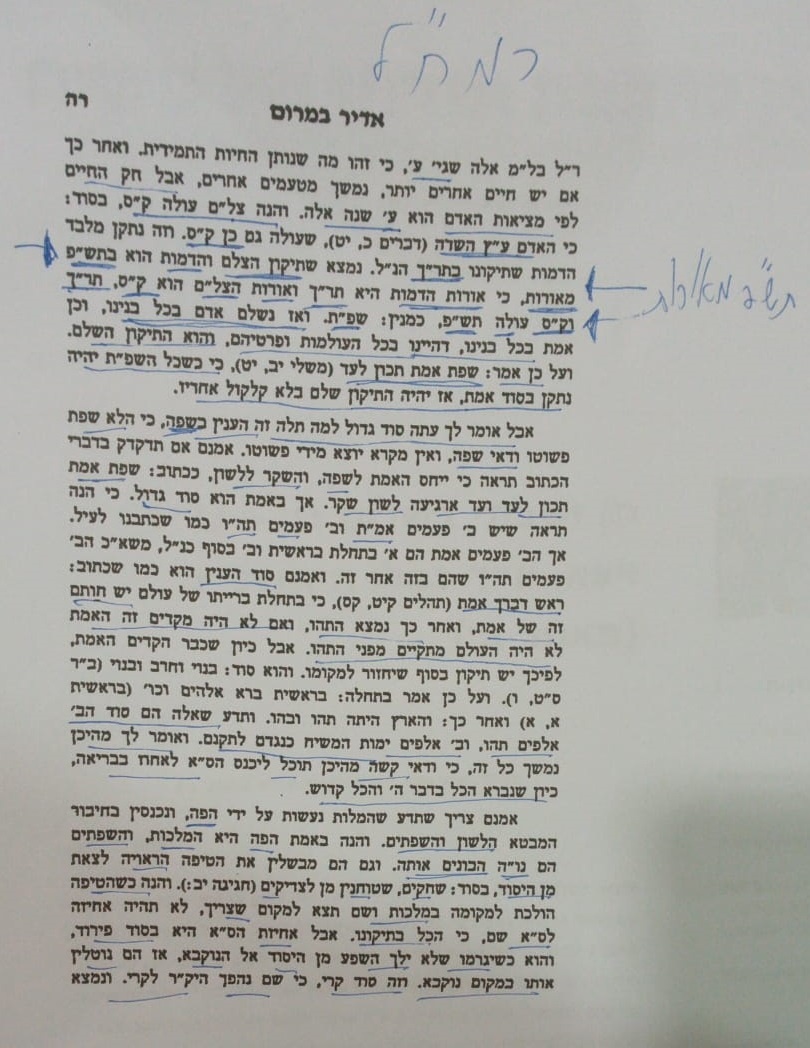 רמח"ל
רה
אדיר במרום
ר"ל בל"מ אלה שגי' ע', כי זהו מה שנותן החיות התמידית. ואחר כך
אם יש חיים אחרים יותר, נמשך מטעמים אחרים, אבל חק החיים
לפי מציאות האדם הוא ע' שנה אלה. והנה צל"ם עולה ק"ס, בסוד:
כי האדם ע"ץ השדה (דברים כ, יט), שעולה גם כן ק"ס. וזה נתקן מלבד
הדמות שתיקונו בתר"ך הנ"ל. נמצא שתיקון הצלם והדמות הוא בתש"פ
מאורות, כי אורות הדמות היא תר"ך ואורות הצל"ם הוא ק"ס, תר"ך
וק"ס עולה תש"פ, כמנין: שפ"ת. ואז נשלם אדם בכל בנינו, וכן
תש"פ מאורות
אמת בכל בנינו, דהיינו בכל העולמות ופרטיהם, והוא התיקון השלם.
ועל כן אמר: שפת אמת תכון לעד (משלי יב, יט), כי כשכל השפ"ת יהיה
נתקן בסוד אמת, אז יהיה התיקון שלם בלא קלקול אחריו.
אבל אומר לך עתה סוד גדול למה תלה זה הענין בשפה, כי הלא שפת
פשוטו ודאי שפה, ואין מקרא יוצא מידי פשוטו. אמנם אם תדקדק בדברי
הכתוב תראה כי ייחס האמת לשפה, והשקר ללשון, ככתוב: שפת אמת
תכון לעד ועד ארגיעה לשון שקר. אך באמת הוא סוד גדול. כי הנה
תראה שיש ב' פעמים אמ"ת וב' פעמים תה"ו כמו שכתבנו לעיל.
אך הב' פעמים אמת הם א' בתחלת בראשית וב' בסוף כנ"ל, משא"כ הב'
פעמים תה"ו שהם בזה אחר זה. ואמנם סוד הענין הוא כמו שכתוב:
ראש דברך אמת (תהלים קיט, קס), כי בתחלת ברייתו של עולם יש חותם
זה של אמת, ואחר כך נמצא התהו, ואם לא היה מקדים זה האמת
לא היה העולם מתקיים מפני התהו. אבל כיון שכבר הקדים האמת,
לפיכך יש תיקון בסוף שיחזור למקומו. והוא סוד: בנוי וחרב ובנוי (ב"ר
ס"ט, ו). ועל כן אמר בתחלה: בראשית ברא אלהים וכו' (בראשית
א, א) ואחר כך: והארץ היתה תהו ובהו. ותדע שאלה הם סוד הב'
אלפים תהו, וב' אלפים ימות המשיח כנגדם לתקנם. ואומר לך מהיכן
נמשך כל זה, כי ודאי קשה מהיכן תוכל ליכנס הס"א לאחוז בבריאה,
כיון שנברא הכל בדבר ה' והכל קדוש.
אמנם צריך שתדע שהמלות נעשות על ידי הפה, ונכנסין בחיבור
המבטא הלשון והשפתים. והנה באמת הפה היא המלכות, והשפתים
הם נו"ה הבונים אותה. וגם הם מבשלין את הטיפה הראויה לצאת
מן היסוד, בסוד: שחקים, שטוחנין מן לצדיקים (חגיגה יב:). והנה כשהטיפה
הולכת למקומה במלכות ושם תצא למקום שצריך, לא תהיה אחיזה
לס"א שם, כי הכל בתיקונו. אבל אחיזת הס"א היא בסוד פירוד,
והוא כשיגרמו שלא ילך השפע מן היסוד אל הנוקבא, אז הם נוטלין
אותו במקום נוקבא. וזה סוד קרי, כי שם נהפך היק"ר לקרי. ונמצא